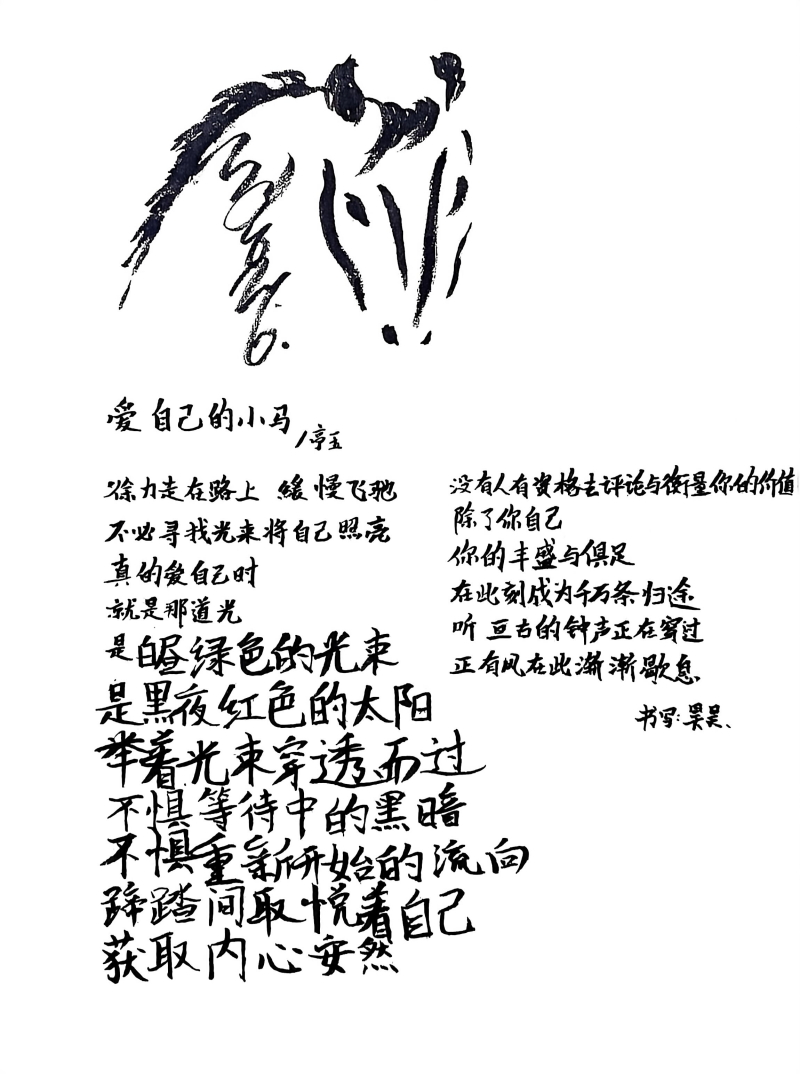 爱自己的小马
/亭玉
徐力走在路上 缓慢飞驰
不必寻找光来将自己照亮
真的爱自己时
就是那道光
是白昼绿色的光束
是黑夜红色的太阳
举着光束穿透而过
不惧等待中的黑暗
不惧重新开始的流向
蹄踏间取悦着自己
获取内心安然
没有人有资格去评论与衡量你的价值
除了你自己
你的丰盛与俱足
在此刻成为千万条归途
听 亘古的钟声正在穿过
正有风在此渐渐歇息
书写:昊昊、